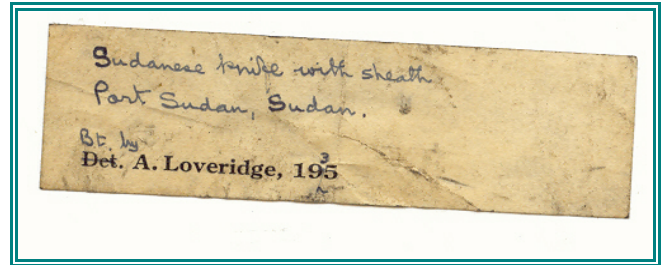 Sudanese knife with sheath
Port Sudan, Sudan.
Bt. by
Det. A. Loveridge, 1953